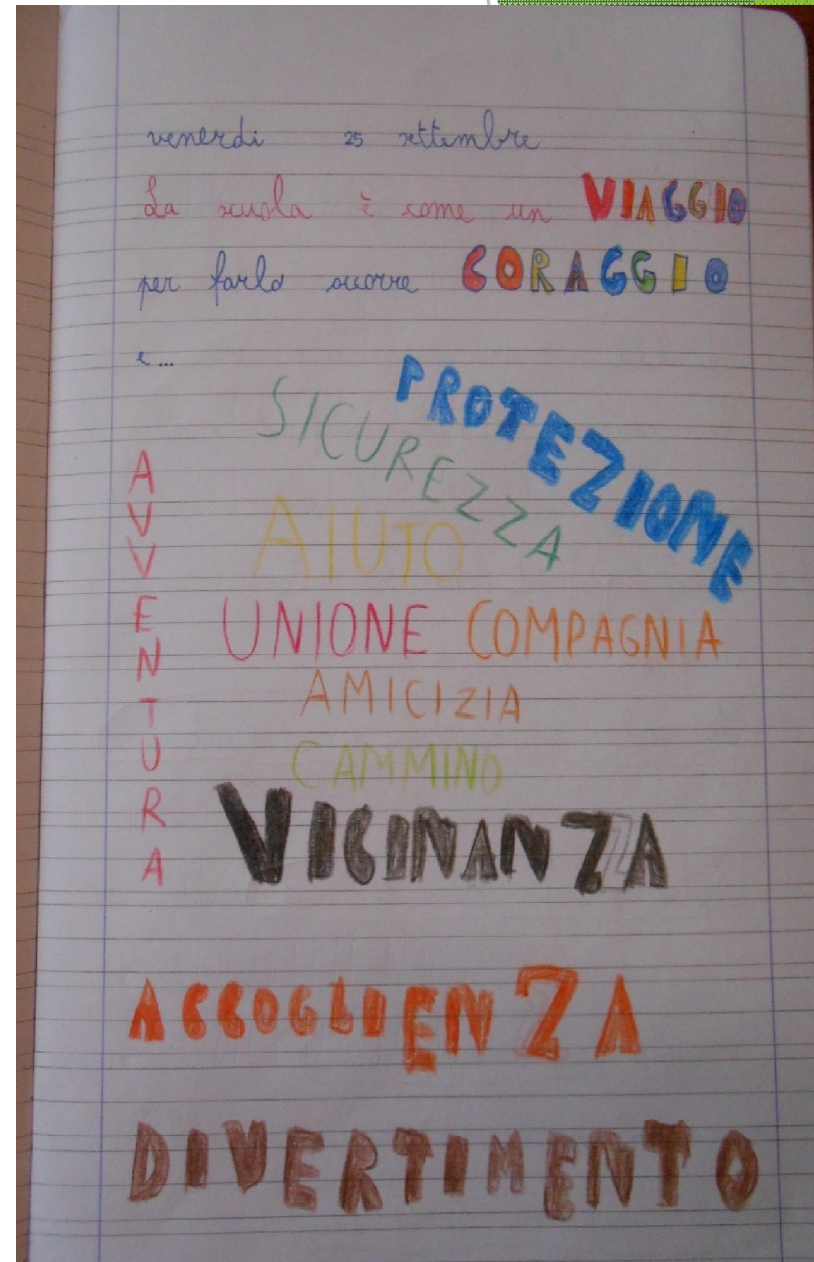 venerdi 25 settembre
La scuola è come un VIAGGIO
per farlo occorre CORAGGIO
e...
PROTEZIONE
SICUREZZA
AVVENTURA
AIUTO
UNIONE COMPAGNIA
AMICIZIA
CAMMINO
VICINANZA
ACCOGLIENZA
DIVERTIMENTO